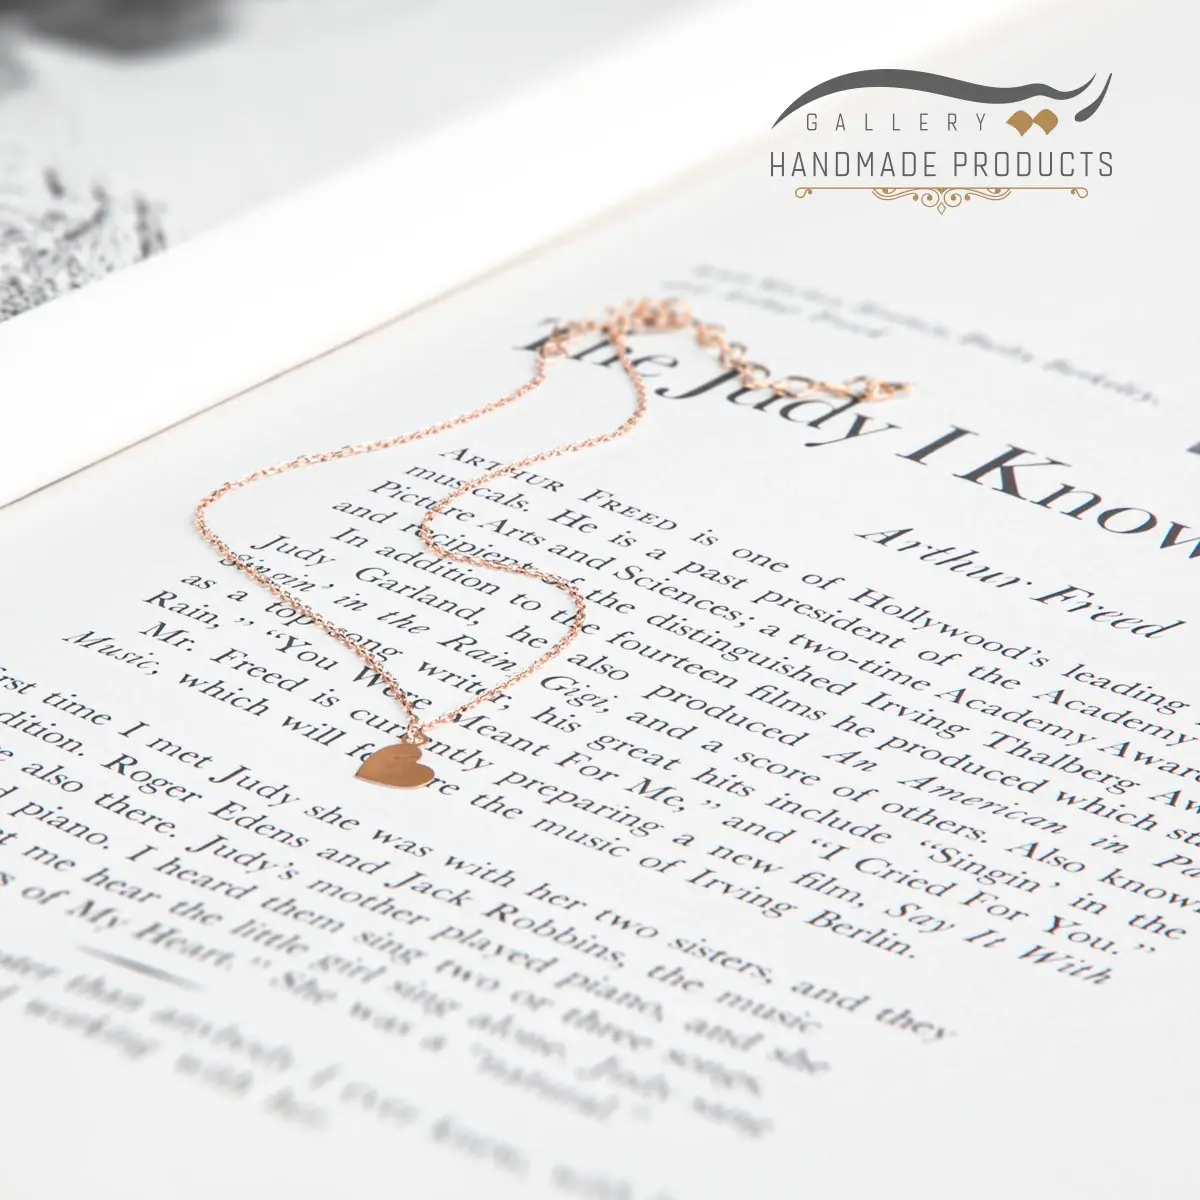 GALLERY
HANDMADE PRODUCTS
The Judy I Know
Arthur Freed
ARTHUR FREED is one of Hollywood's leading
musicals. He is a past president of the Academy
Picture Arts and Sciences; a two-time Academy Awar
and recipient of the distinguished Irving Thalberg Aw
In addition to the fourteen films he produced which st
Judy Garland, he also produced An American in Pa
Singin' in the Rain, Gigi, and a score of others. Also know
as a top song writer, his great hits include “Singin' in the
Rain,” “You Were Meant For Me,” and “I Cried For You.”
Mr. Freed is currently preparing a new film, Say It With
Music, which will feature the music of Irving Berlin.
rst time I met Judy she was with her two sisters, and they
dition. Roger Edens and Jack Robbins, the music
e also there. Judy's mother played piano, and she
d piano. I heard them sing two or three songs,
t me hear the little girl sing alone. Judy sang
s of My Heart.” She was a “natural.”
ater than anybody I ever knew, with
d working with her.